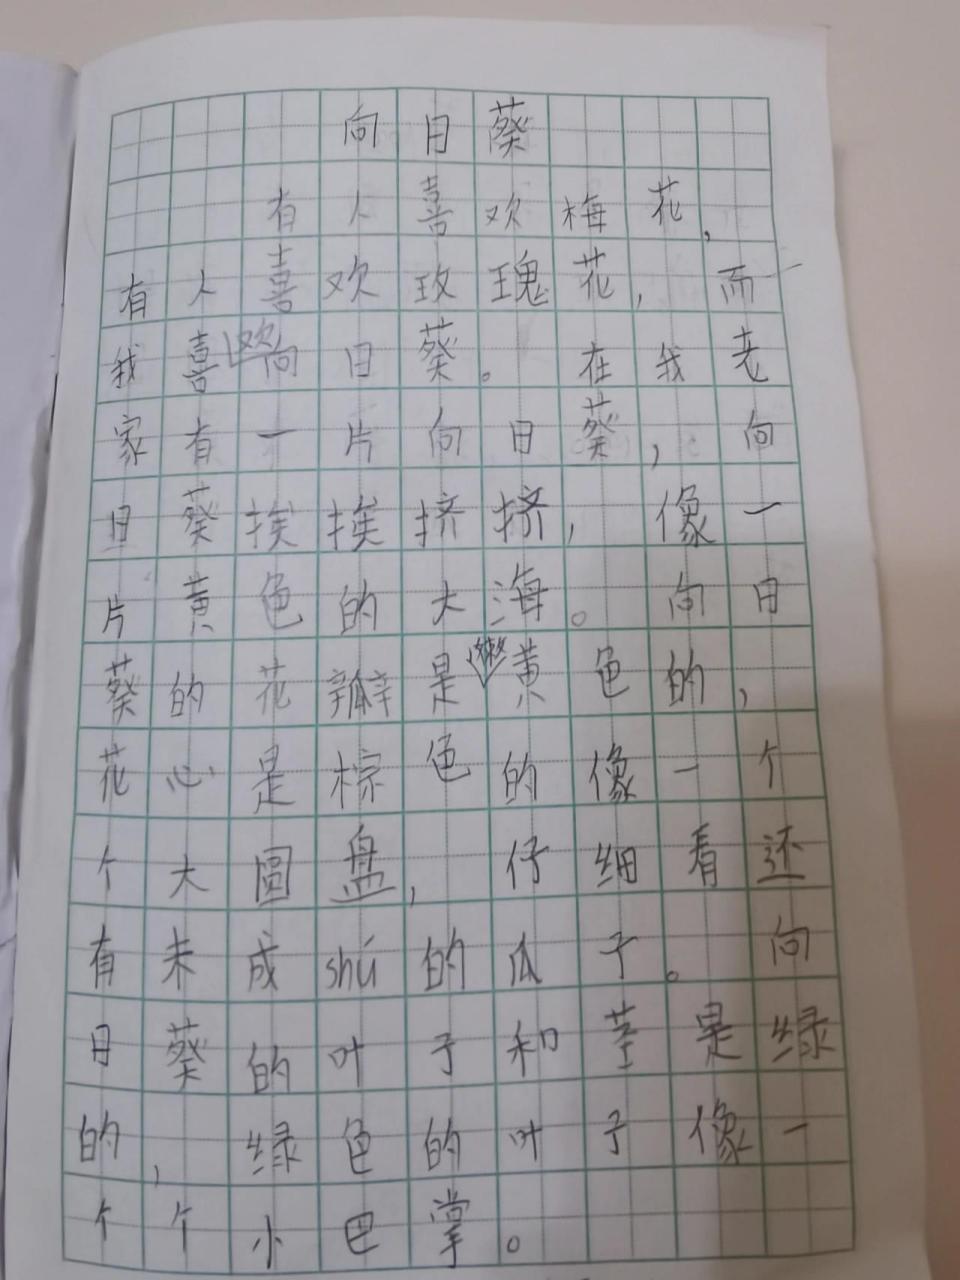 向日葵
有人喜欢梅花，
有人喜欢玫瑰花，而
我喜欢向日葵。在我老
家有一片向日葵，向
日葵挨挨挤挤，像一
片黄色的大海。向日
葵的花瓣是嫩黄色的，
花心是棕色的像一个
个大圆盘，仔细看还
有未成shú的瓜子。向
日葵的叶子和茎是绿
的，绿色的叶子像一
个个小巴掌。